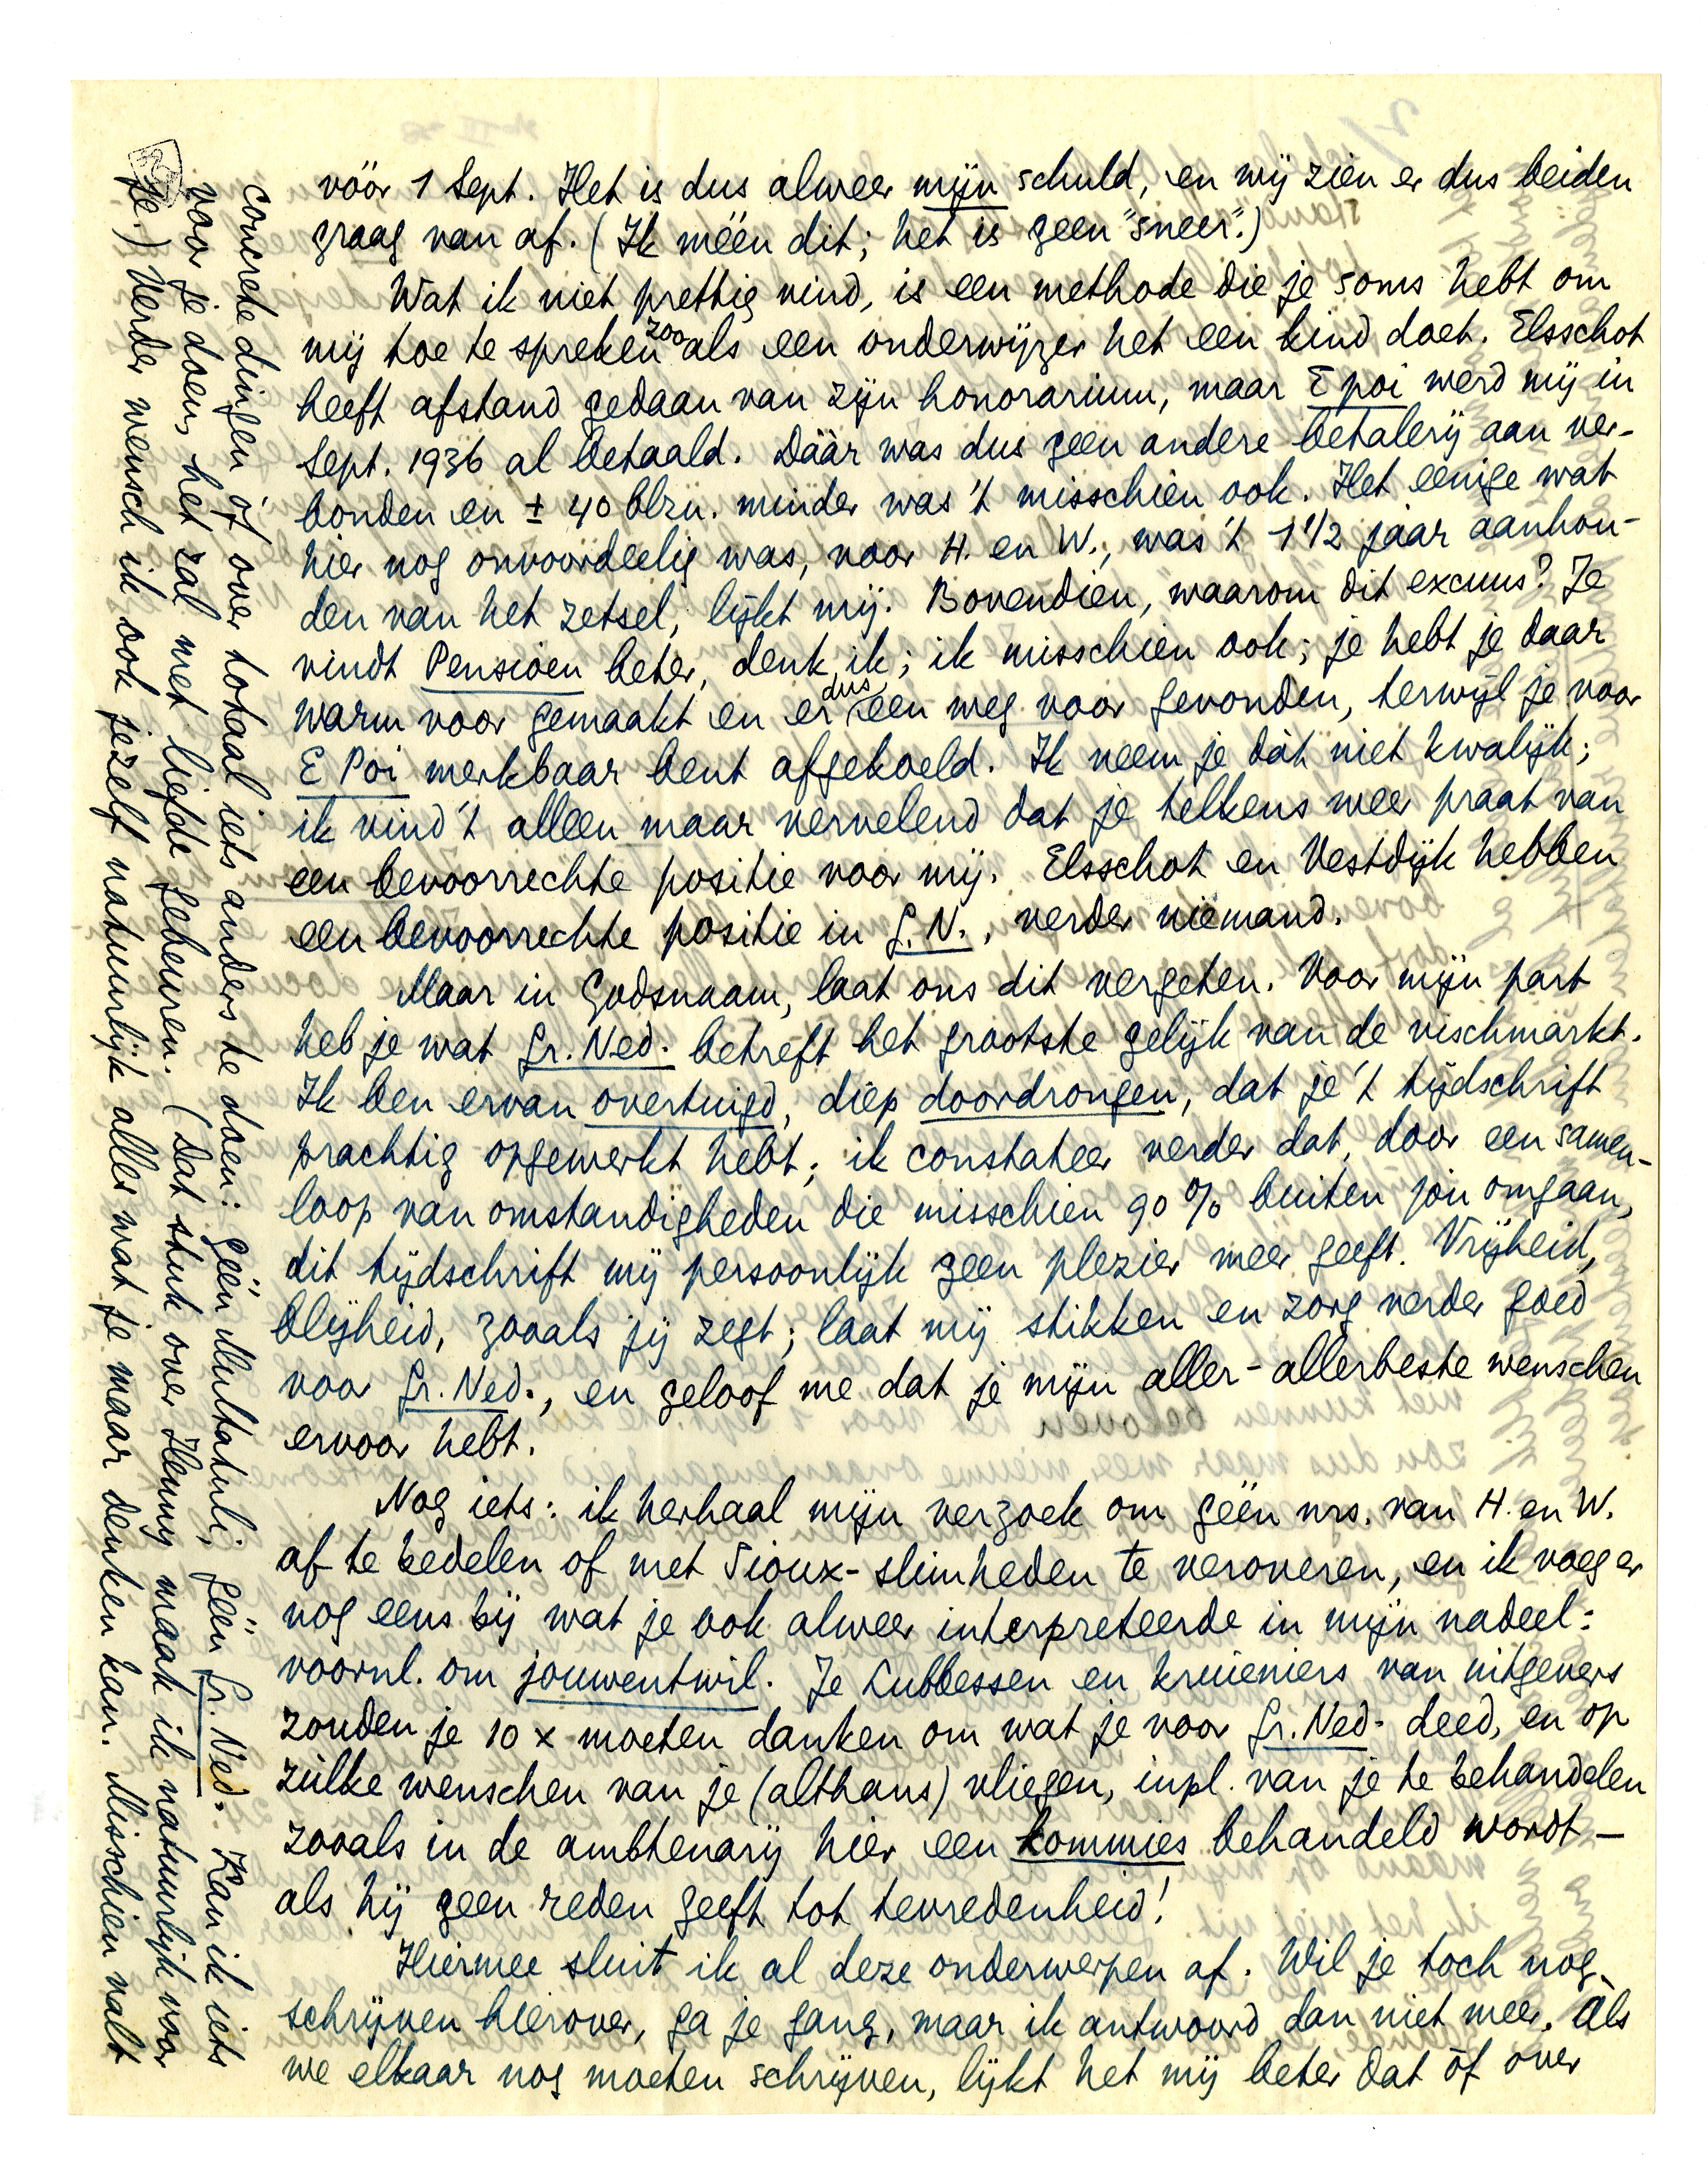 vóór 1 Sept. Het is dus alweer mijn schuld, en wij zien er dus beiden
graag van af. (Ik méén dit; het is geen "sneer".)
Wat ik niet prettig vind, is een methode die je soms hebt om
mij toe te spreken zooals een onderwijzer het een kind doet. Elsschot
heeft afstand gedaan van zijn honorarium, maar E poi werd mij in
Sept. 1936 al betaald. Dáár was dus geen andere betalerij aan ver-
bonden en ± 40 blzn. minder was 't misschien ook. Het eenige wat
hier nog onvoordeelig was, voor H. en W., was 't 1 1/2 jaar aanhou-
den van het zetsel, lijkt mij. Bovendien, waarom dit excuus? Je
vindt Pensioen beter, denk ik; ik misschien ook; je hebt je daar
warm voor gemaakt en er dus een weg voor gevonden, terwijl je voor
E Poi merkbaar bent afgekoeld. Ik neem je dàt niet kwalijk;
ik vind 't alleen maar vervelend dat je telkens weer praat van
een bevoorrechte positie voor mij. Elsschot en Vestdijk hebben
een bevoorrechte positie in G.N., verder niemand.
Maar in Godsnaam, laat ons dit vergeten. Voor mijn part
heb je wat Gr. Ned. betreft het grootste gelijk van de vischmarkt.
Ik ben ervan overtuigd, diep doordrongen, dat je 't tijdschrift
prachtig opgewerkt hebt; ik constateer verder dat, door een samen-
loop van omstandigheden die misschien 90 % buiten jou omgaan,
dit tijdschrift mij persoonlijk geen plezier meer geeft. Vrijheid,
blijheid, zooals jij zegt; laat mij stikken en zorg verder goed
voor Gr. Ned., en geloof me dat je mijn aller-allerbeste wenschen
ervoor hebt.
Nog iets: ik herhaal mijn verzoek om géén nrs. van H. en W.
af te bedelen of met Sioux-slimheden te veroveren, en ik voeg er
nog eens bij wat je ook alweer interpreteerde in mijn nadeel:
voornl. om jouwentwil. Je Lubbessen en kruieniers van uitgevers
zouden je 10 x moeten danken om wat je voor Gr. Ned. deed, en op
zulke wenschen van je (althans) vliegen, inpl. van je te behandelen
zooals in de ambtenarij hier een kommies behandeld wordt –
als hij geen reden geeft tot tevredenheid!
Hiermee sluit ik al deze onderwerpen af. Wil je toch nog
schrijven hierover, ga je gang, maar ik antwoord dan niet meer. Als
we elkaar nog moeten schrijven, lijkt het mij beter dat òf over
concrete dingen òf over totaal iets anders te doen: géén Multatuli, géén Gr. Ned. Kan ik iets
voor je doen, het zal met liefde gebeuren. (Dat stuk over Henny maak ik natuurlijk voor
je.) Verder wensch ik ook jezelf natuurlijk alles wat je maar denken kan. Misschien valt